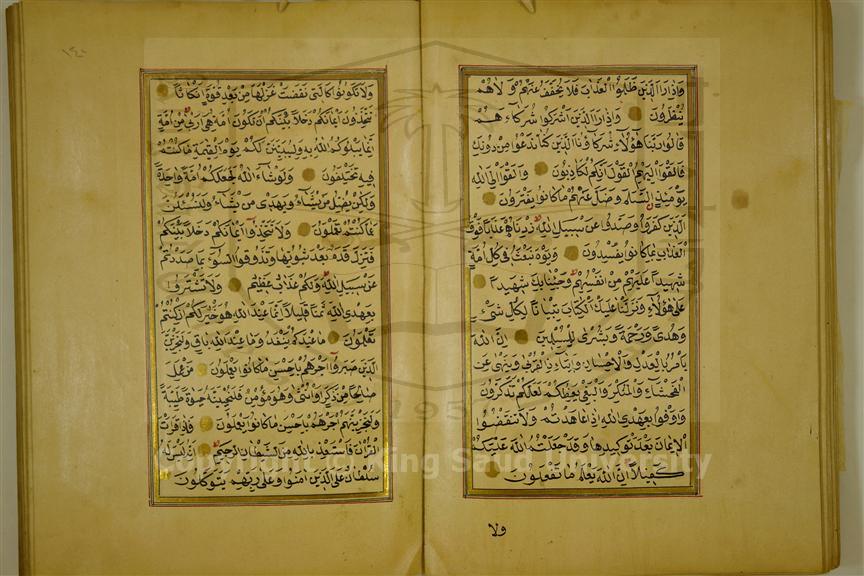 وَاِذَا رَاَ الَّذِينَ ظَلَمُوا الْعَذَابَ فَلَا يُخَفَّفُ عَنْهُمْ وَلَا هُمْ
يُنْظَرُونَ وَاِذَا رَاَ الَّذِينَ اَشْرَكُوا شُرَكَاءَهُمْ
قَالُوا رَبَّنَا هٰؤُلَاءِ شُرَكَاؤُنَا الَّذِينَ كُنَّا نَدْعُوا مِنْ دُونِكَ
فَاَلْقَوْا اِلَيْهِمُ الْقَوْلَ اِنَّكُمْ لَكَاذِبُونَ وَاَلْقَوْا اِلَى اللّٰهِ
يَوْمَئِذٍ السَّلَمَ وَضَلَّ عَنْهُمْ مَا كَانُوا يَفْتَرُونَ
الَّذِينَ كَفَرُوا وَصَدُّوا عَنْ سَبِيلِ اللّٰهِ زِدْنَاهُمْ عَذَابًا فَوْقَ
الْعَذَابِ بِمَا كَانُوا يُفْسِدُونَ وَيَوْمَ نَبْعَثُ فِي كُلِّ اُمَّةٍ
شَهِيدًا عَلَيْهِمْ مِنْ اَنْفُسِهِمْ وَجِئْنَا بِكَ شَهِيدًا
عَلٰى هٰؤُلَاءِ وَنَزَّلْنَا عَلَيْكَ الْكِتَابَ تِبْيَانًا لِكُلِّ شَيْءٍ
وَهُدًى وَرَحْمَةً وَبُشْرٰى لِلْمُسْلِمِينَ اِنَّ اللّٰهَ
يَأْمُرُ بِالْعَدْلِ وَالْاِحْسَانِ وَاِيتَاءِ ذِي الْقُرْبٰى وَيَنْهٰى عَنِ
الْفَحْشَاءِ وَالْمُنْكَرِ وَالْبَغْيِ يَعِظُكُمْ لَعَلَّكُمْ تَذَكَّرُونَ
وَاَوْفُوا بِعَهْدِ اللّٰهِ اِذَا عَاهَدْتُمْ وَلَا تَنْقُضُوا
الْاَيْمَانَ بَعْدَ تَوْكِيدِهَا وَقَدْ جَعَلْتُمُ اللّٰهَ عَلَيْكُمْ
كَفِيلًا اِنَّ اللّٰهَ يَعْلَمُ مَا تَفْعَلُونَ
ولا
وَلَا تَكُونُوا كَالَّتِي نَقَضَتْ غَزْلَهَا مِنْ بَعْدِ قُوَّةٍ اَنْكَاثًا
تَتَّخِذُونَ اَيْمَانَكُمْ دَخَلًا بَيْنَكُمْ اَنْ تَكُونَ اُمَّةٌ هِيَ اَرْبٰى مِنْ اُمَّةٍ
اِنَّمَا يَبْلُوكُمُ اللّٰهُ بِهِ وَلَيُبَيِّنَنَّ لَكُمْ يَوْمَ الْقِيٰمَةِ مَا كُنْتُمْ
فِيهِ تَخْتَلِفُونَ وَلَوْ شَاءَ اللّٰهُ لَجَعَلَكُمْ اُمَّةً وَاحِدَةً
وَلٰكِنْ يُضِلُّ مَنْ يَشَاءُ وَيَهْدِي مَنْ يَشَاءُ وَلَتُسْئَلُنَّ
عَمَّا كُنْتُمْ تَعْمَلُونَ وَلَا تَتَّخِذُوا اَيْمَانَكُمْ دَخَلًا بَيْنَكُمْ
فَتَزِلَّ قَدَمٌ بَعْدَ ثُبُوتِهَا وَتَذُوقُوا السُّوءَ بِمَا صَدَدْتُمْ
عَنْ سَبِيلِ اللّٰهِ وَلَكُمْ عَذَابٌ عَظِيمٌ وَلَا تَشْتَرُوا
بِعَهْدِ اللّٰهِ ثَمَنًا قَلِيلًا اِنَّمَا عِنْدَ اللّٰهِ هُوَ خَيْرٌ لَكُمْ اِنْ كُنْتُمْ
تَعْلَمُونَ مَا عِنْدَكُمْ يَنْفَدُ وَمَا عِنْدَ اللّٰهِ بَاقٍ وَلَنَجْزِيَنَّ
الَّذِينَ صَبَرُوا اَجْرَهُمْ بِاَحْسَنِ مَا كَانُوا يَعْمَلُونَ مَنْ عَمِلَ
صَالِحًا مِنْ ذَكَرٍ اَوْ اُنْثٰى وَهُوَ مُؤْمِنٌ فَلَنُحْيِيَنَّهُ حَيٰوةً طَيِّبَةً
وَلَنَجْزِيَنَّهُمْ اَجْرَهُمْ بِاَحْسَنِ مَا كَانُوا يَعْمَلُونَ فَاِذَا قَرَأْتَ
الْقُرْاٰنَ فَاسْتَعِذْ بِاللّٰهِ مِنَ الشَّيْطَانِ الرَّجِيمِ اِنَّهُ لَيْسَ لَهُ
سُلْطَانٌ عَلَى الَّذِينَ اٰمَنُوا وَعَلٰى رَبِّهِمْ يَتَوَكَّلُونَ
Copyright © King Saud University
195